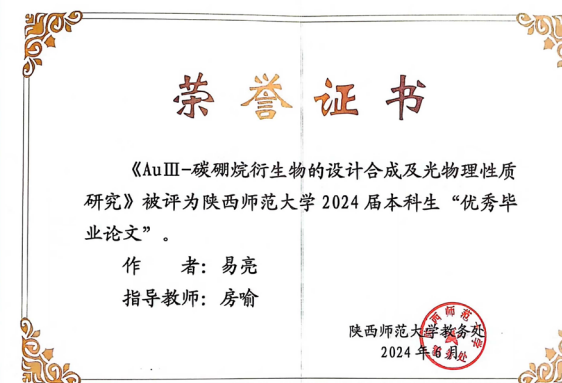 荣誉证书
《AuⅢ-碳硼烷衍生物的设计合成及光物理性质
研究》被评为陕西师范大学2024届本科生“优秀毕
业论文”。
作 者：易亮
指导教师：房喻
陕西师范大学教务处
2024年6月